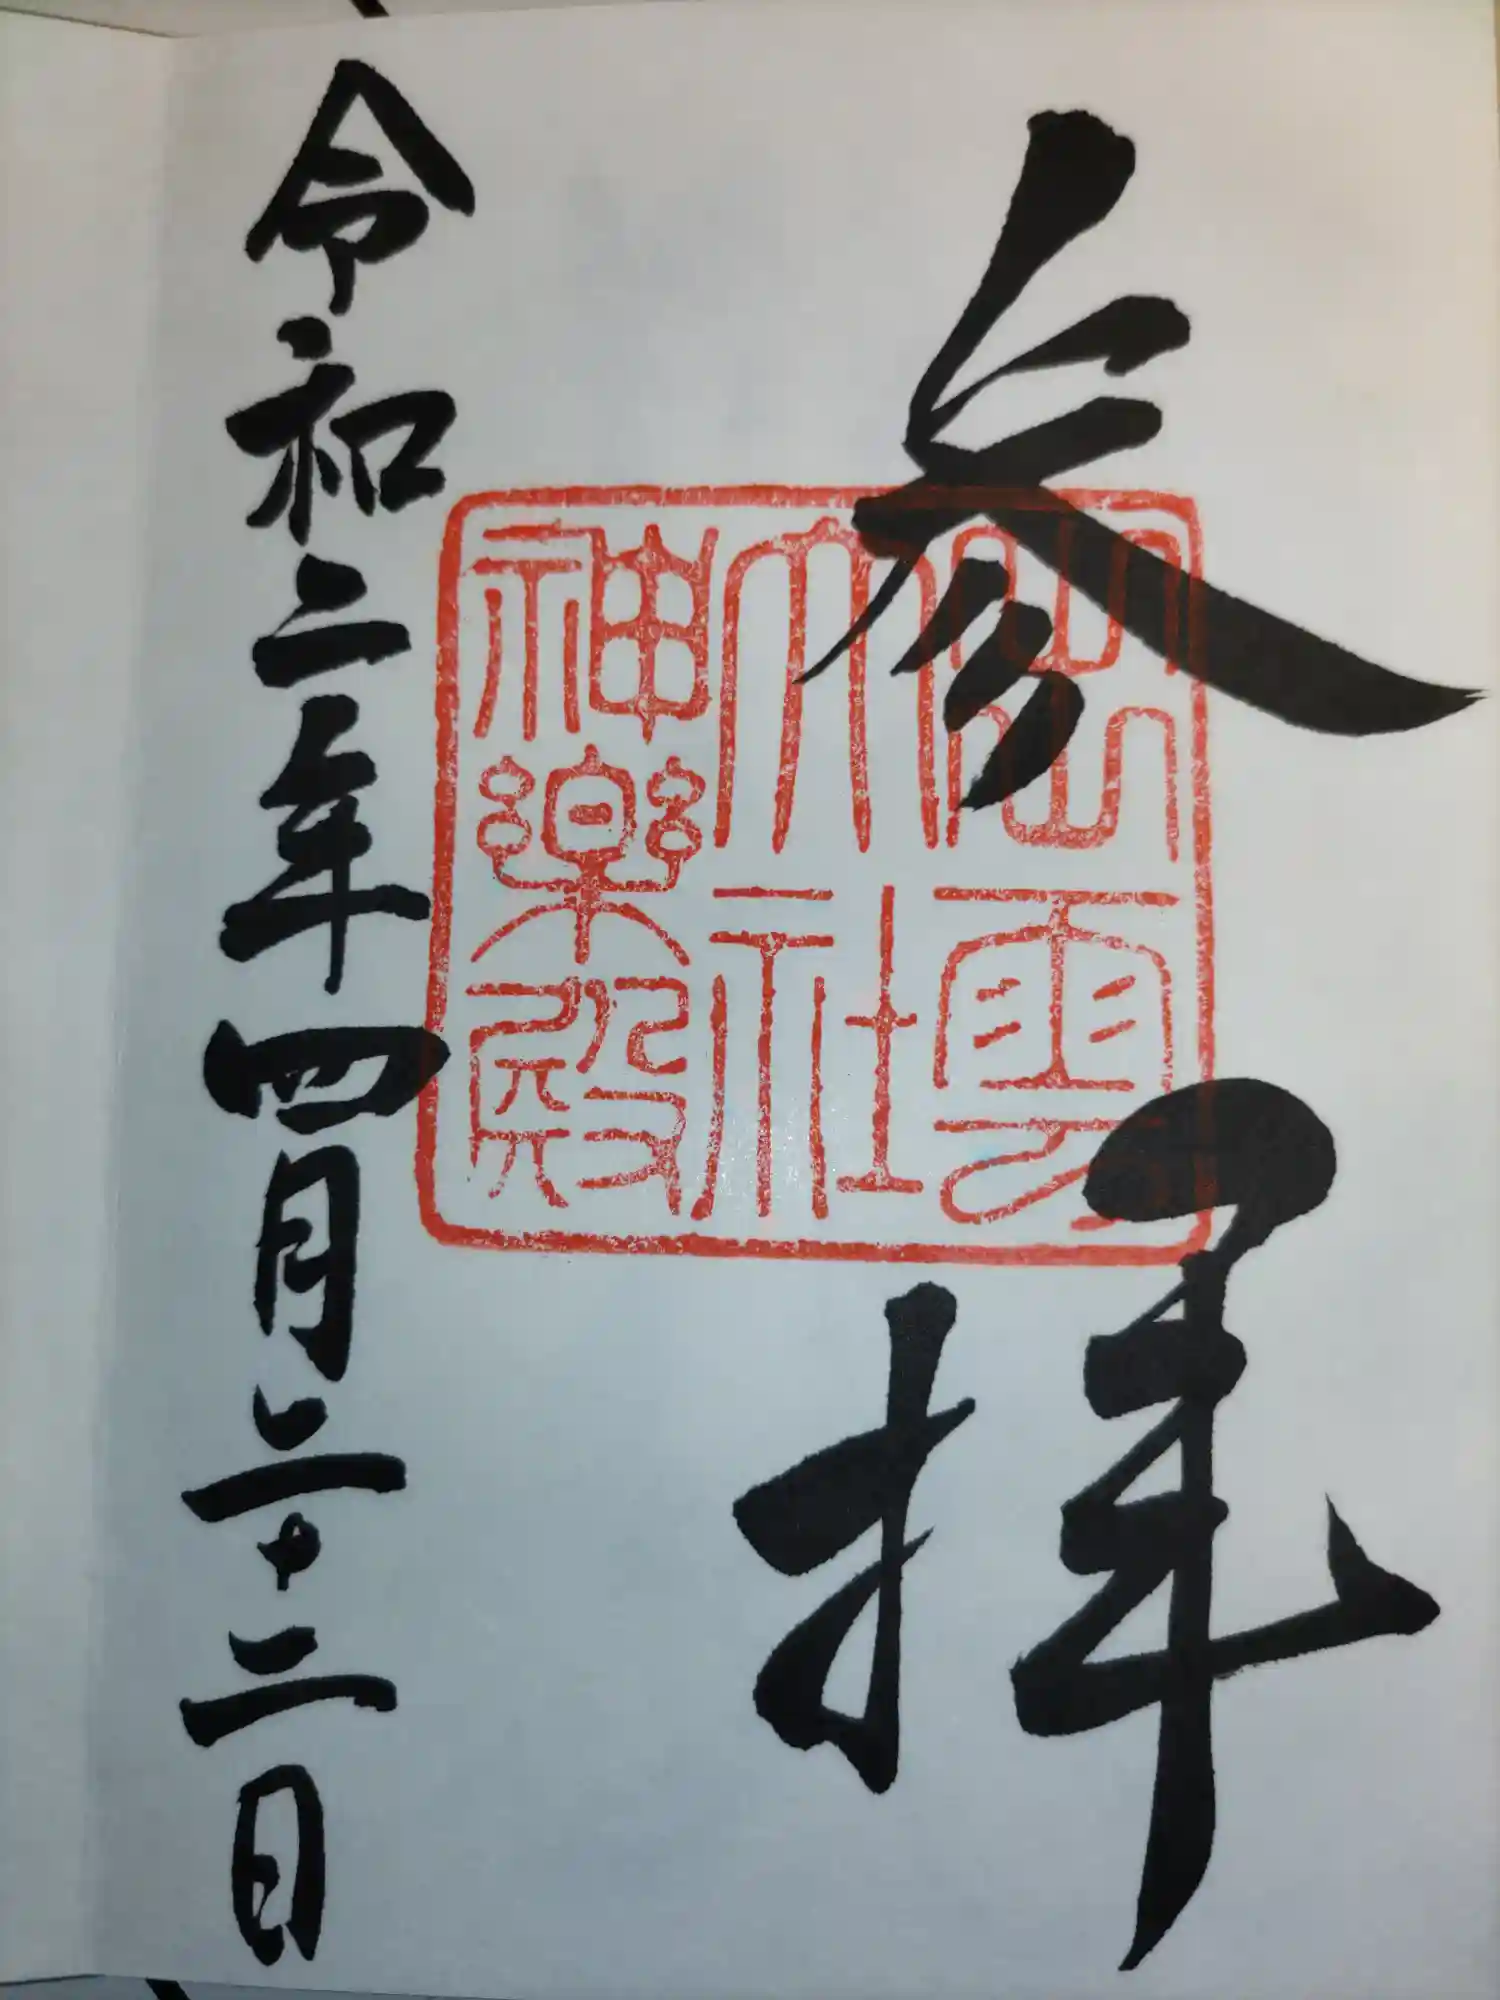 参拝
出雲
大社
神楽殿
令和二年四月二十二日